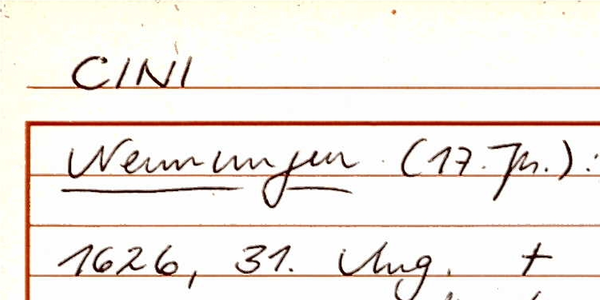 CINI
Nennungen (17. Jh.):
1626, 31. Aug. +